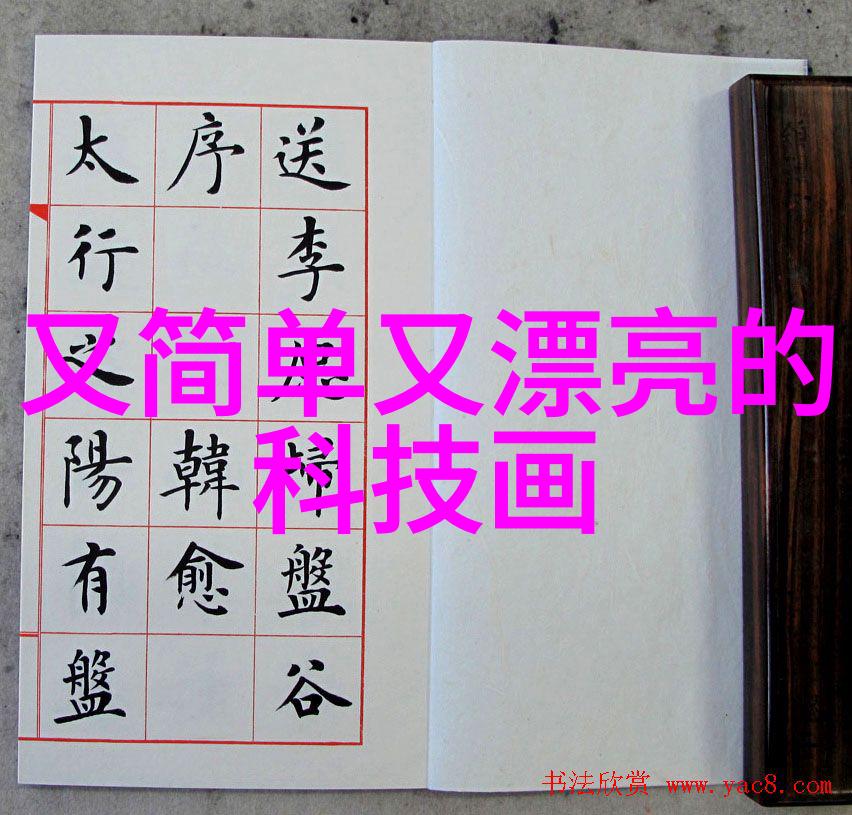 送李愿歸盤谷
序 韓愈
太行之陽有盤
又简单又漂亮的
科技画
书法欣赏 www.yac8.com